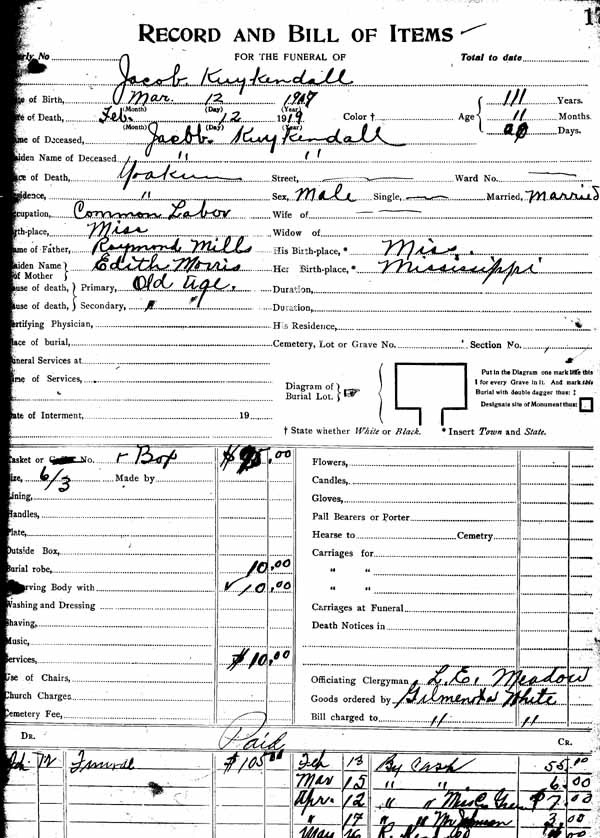 1
RECORD AND BILL OF ITEMS
No FOR THE FUNERAL OF Total to date
Jacob Kuykendall
of Birth, Mar. 12
(Month) (Day) (Year)
of Death, Feb. 12 1919 Color † Age 111 Years.
11 Months.
Days.
(Month) (Day) (Year)
of Deceased, Jacob Kuykendall
Name of Deceased " "
of Death, Yoakum Street, Ward No.
" Sex, Male Single, Married, Married
Common Labor Wife of
Miss Widow of
of Father, Raymond Mills His Birth-place,* Miss.
Name of Mother Edith Morris Her Birth-place,* Mississippi
of death, Primary, Old Age. Duration,
of death, Secondary, " " Duration,
Physician, His Residence,
of burial, Cemetery, Lot or Grave No. Section No.
Services at
of Services,
Diagram of Burial Lot.
Put in the Diagram one mark like this
1 for every Grave in it. And mark this
Burial with double dagger thus: ‡
Designate site of Monument thus:
of Interment, 19
† State whether White or Black. * Insert Town and State.
Casket or No. + Box .00
6/3 Made by
Lining,
Handles,
Plate,
Outside Box,
Burial robe, 10.00
Body with ✓ 10.00
Washing and Dressing
Shaving,
Music,
Services, $10.00
Use of Chairs,
Church Charges
Cemetery Fee,
Flowers,
Candles,
Gloves,
Pall Bearers or Porter
Hearse to Cemetry
Carriages for
" "
" "
Carriages at Funeral
Death Notices in
Officiating Clergyman L.E. Meadow
Goods ordered by White
Bill charged to " "
DR. Paid CR.
Funeral $105.00 Feb 13 By Cash 55.00
Mar 15 " " 6.00
Apr. 12 " " 7.00
" 17 " " 3.00
May 16